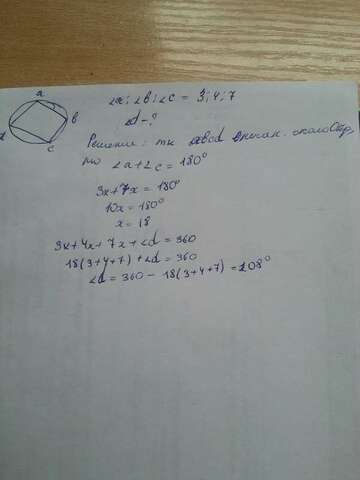 a
b
c
d
∠a; ∠b; ∠c = 3; 4; 7
∠d - ?
Решение: тк abcd вписан. около окр,
то ∠a+∠c = 180°
3x+7x = 180°
10x = 180°
x = 18
3x+4x+7x+∠d = 360
18(3+4+7)+∠d = 360
∠d = 360 - 18(3+4+7) = 108°